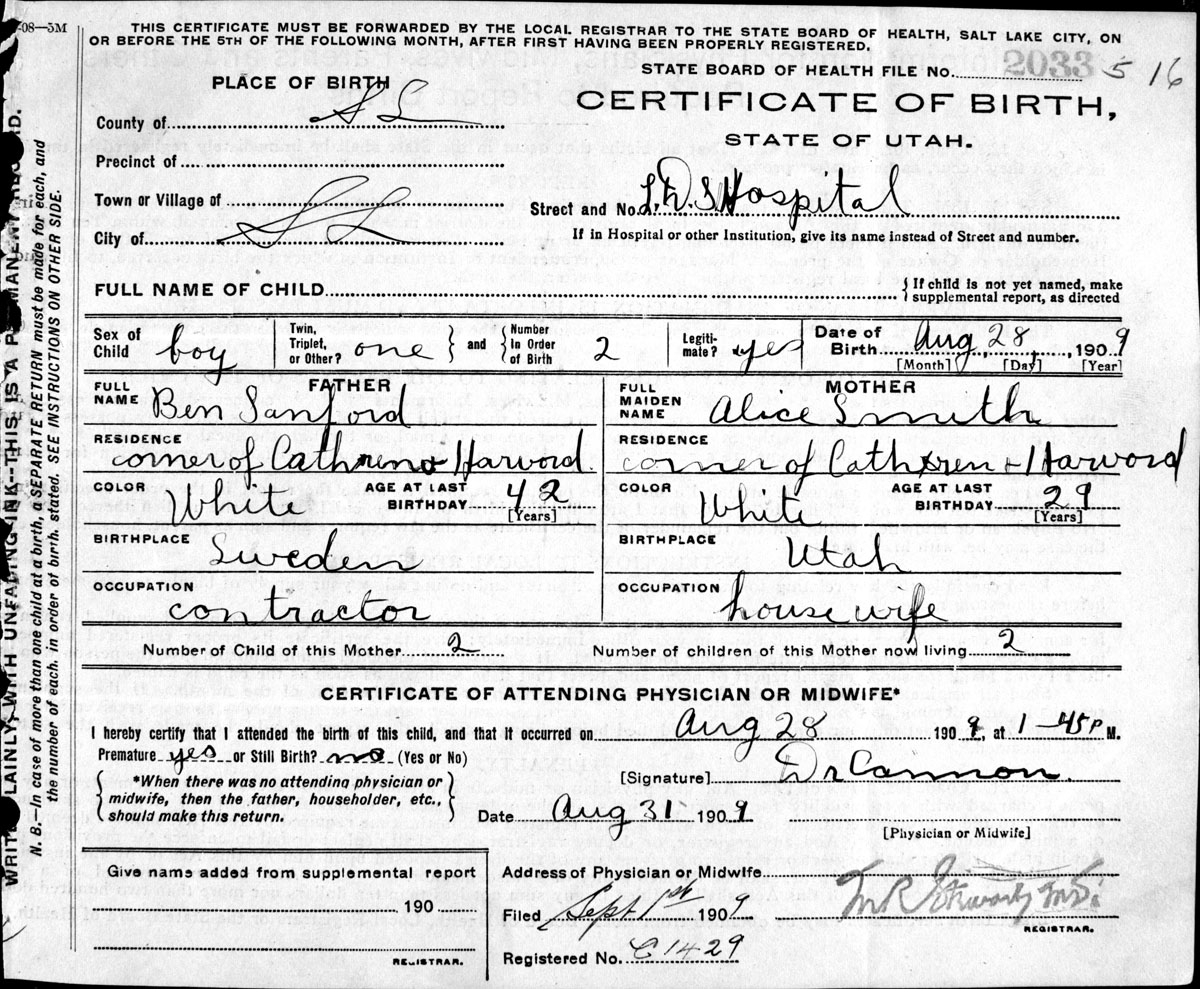 -08—5M
THIS CERTIFICATE MUST BE FORWARDED BY THE LOCAL REGISTRAR TO THE STATE BOARD OF HEALTH, SALT LAKE CITY, ON
OR BEFORE THE 5TH OF THE FOLLOWING MONTH, AFTER FIRST HAVING BEEN PROPERLY REGISTERED.
STATE BOARD OF HEALTH FILE NO. 2033 5 16
PLACE OF BIRTH
CERTIFICATE OF BIRTH,
STATE OF UTAH.
County of S L
Precinct of
Town or Village of
City of S L
Street and No. L.D.S Hospital
If in Hospital or other Institution, give its name instead of Street and number.
FULL NAME OF CHILD { If child is not yet named, make
supplemental report, as directed
Sex of Child boy Twin, Triplet, or Other? one } and { Number In Order of Birth 2 Legiti-mate? yes Date of Birth Aug, 28, 1909
[Month] [Day] [Year]
FATHER
FULL NAME Ben Sanford
MOTHER
FULL MAIDEN NAME Alice Smith
RESIDENCE corner of Cathren + Harvord
RESIDENCE corner of Cathren + Harvord
COLOR White AGE AT LAST BIRTHDAY 42 [Years]
COLOR White AGE AT LAST BIRTHDAY 29 [Years]
BIRTHPLACE Sweden
BIRTHPLACE Utah
OCCUPATION contractor
OCCUPATION house wife
Number of Child of this Mother 2 Number of children of this Mother now living 2
CERTIFICATE OF ATTENDING PHYSICIAN OR MIDWIFE*
I hereby certify that I attended the birth of this child, and that it occurred on Aug 28 1909, at 1-45P M.
Premature yes or Still Birth? no (Yes or No)
{ *When there was no attending physician or
midwife, then the father, householder, etc.,
should make this return. }
[Signature] Dr Cannon.
Date Aug 31 1909
[Physician or Midwife]
Give name added from supplemental report
190
REGISTRAR.
Address of Physician or Midwife
Filed Sept 1st 1909
REGISTRAR.
Registered No. C1429
WRITE PLAINLY, WITH UNFADING INK--THIS IS A PERMANENT RECORD.
N. B.—In case of more than one child at a birth, a SEPARATE RETURN must be made for each, and
the number of each, in order of birth, stated. SEE INSTRUCTIONS ON OTHER SIDE.